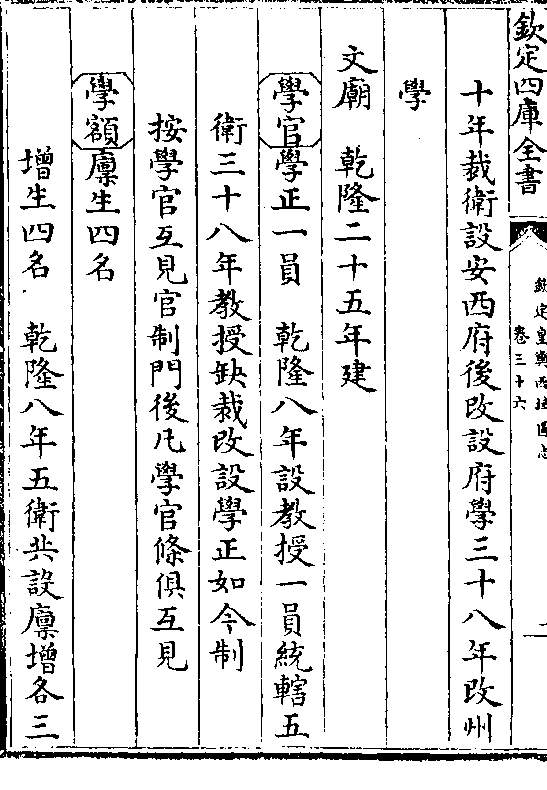 欽定四庫全書
欽定皇輿西域圖志
卷三十六
十年裁衛設安西府後改設府學三十八年改州
學
文廟 乾隆二十五年建
學官學正一員 乾隆八年設教授一員統轄五
衛三十八年教授缺裁改設學正如今制
按學官互見官制門後凡學官條俱互見
學額廩生四名
增生四名 乾隆八年五衛共設廩增各三